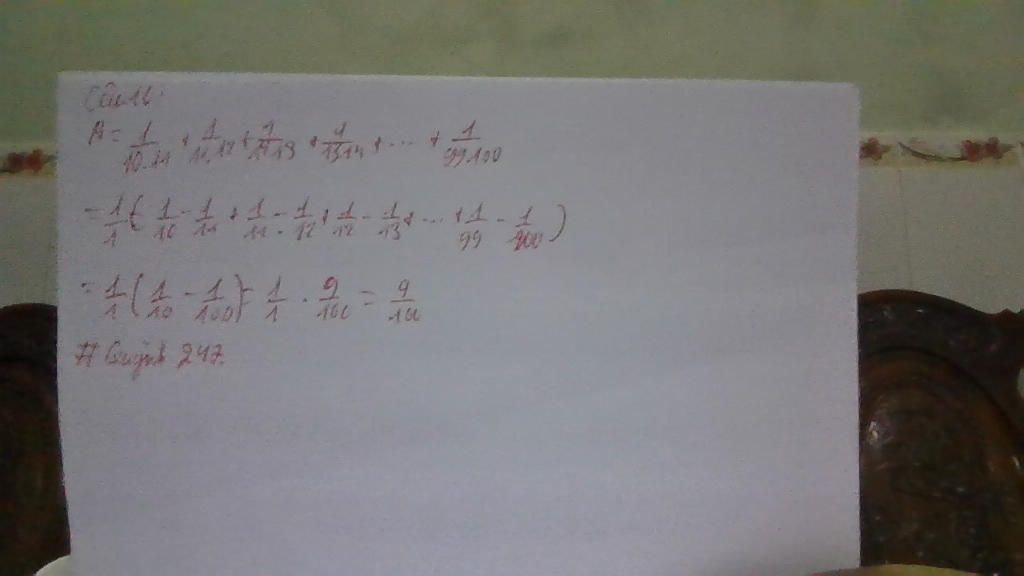 Câu 16:
A = 1/10.11 + 1/11.12 + 1/12.13 + 1/13.14 + ... + 1/99.100
= 1/1 ( 1/10 - 1/11 + 1/11 - 1/12 + 1/12 - 1/13 + ... + 1/99 - 1/100 )
= 1/1 ( 1/10 - 1/100 ) = 1/1 . 9/100 = 9/100
# Quỳnh 247.